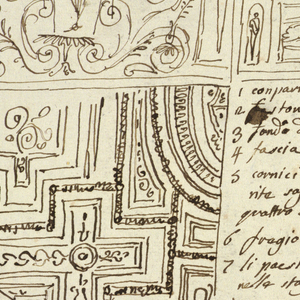 1 compar
2 festo
3 fondo
4 fascia
5 cornici
rite so
quattro
6 fregio
7 li paes
nelle sto